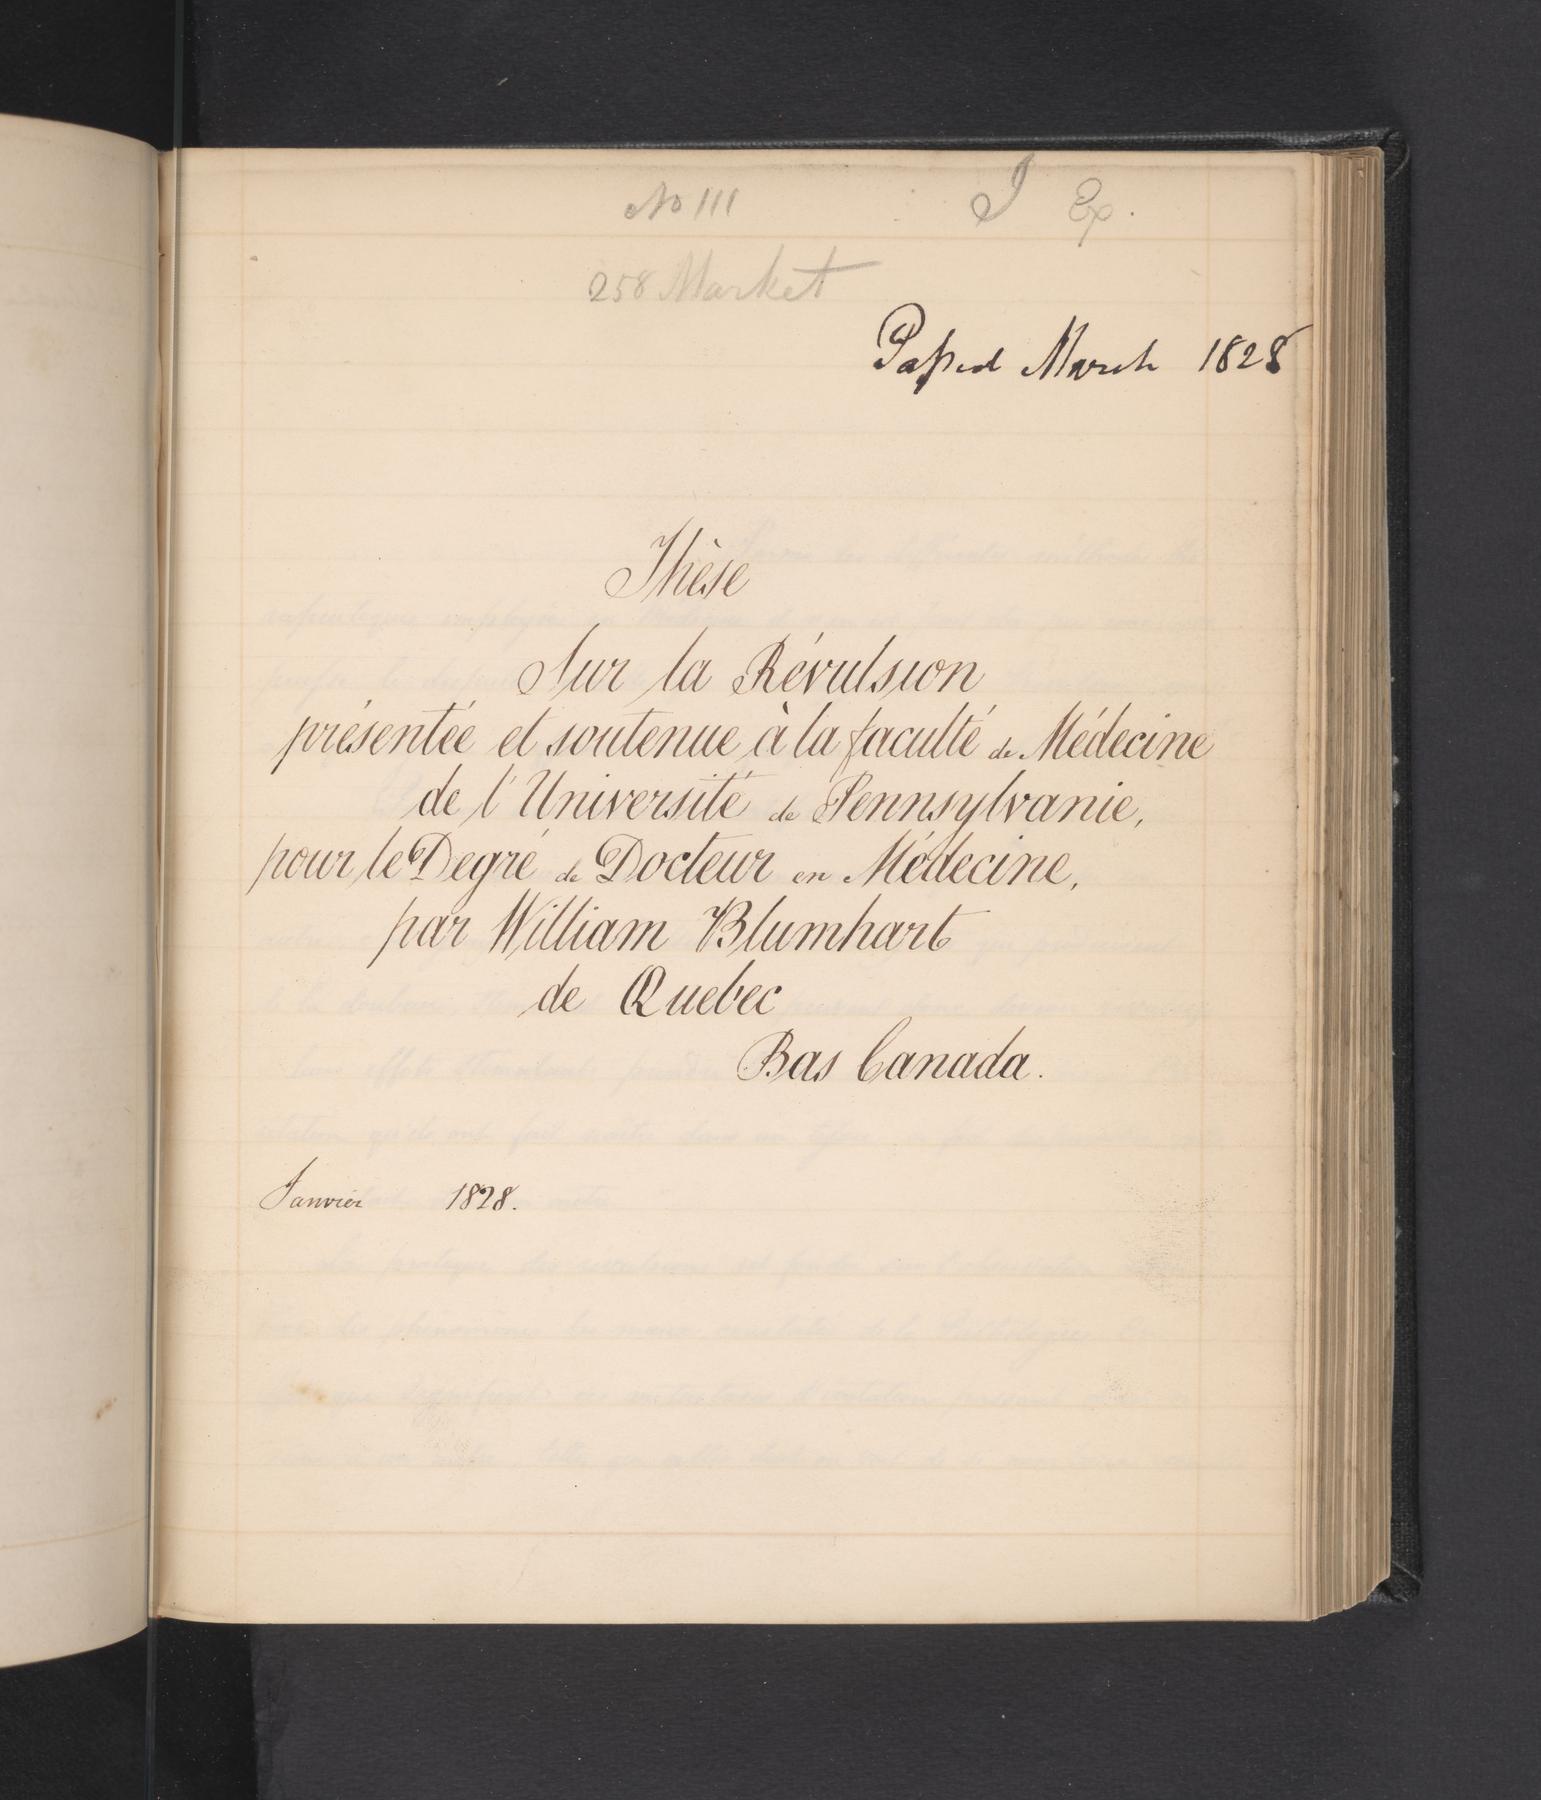 No 111 I Ex.
258 Market
Passed March 1828
Thèse
Sur la Révulsion
présentée et soutenue à la faculté de Médecine
de l'Université de Pennsylvanie,
pour le Degré de Docteur en Médecine,
par William Blumhart
de Quebec
Bas Canada.
Janvier 1828.